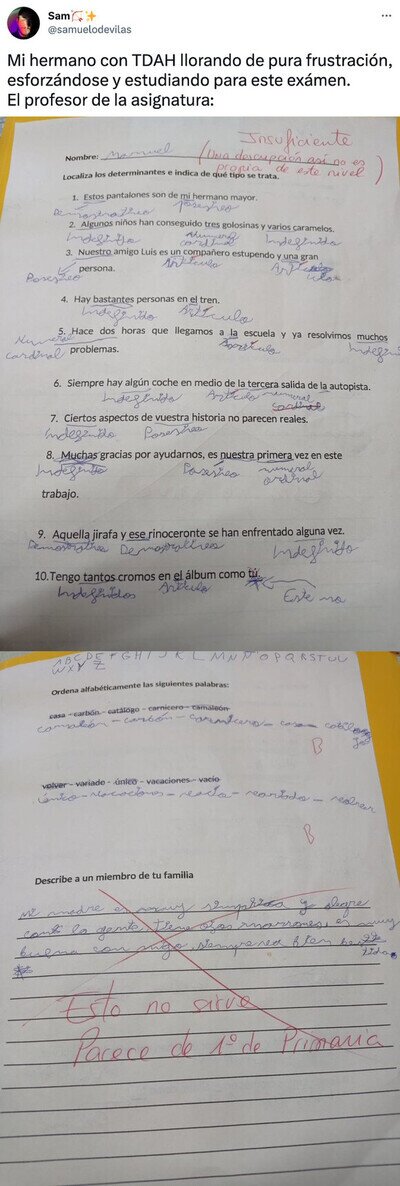 Sam
@samuelodevilas
Mi hermano con TDAH llorando de pura frustración,
esforzándose y estudiando para este exámen.
El profesor de la asignatura:
Insuficiente
Nombre: Manuel
(Una descripción así no es
propia de este nivel)
Localiza los determinantes e indica de qué tipo se trata.
1. Estos pantalones son de mi hermano mayor.
Demostrativo Posesivo
2. Algunos niños han conseguido tres golosinas y varios caramelos.
Indefinido Numeral cardinal Indefinido
3. Nuestro amigo Luis es un compañero estupendo y una gran
persona.
Posesivo Artículo Artículo
4. Hay bastantes personas en el tren.
Indefinido Artículo
5. Hace dos horas que llegamos a la escuela y ya resolvimos muchos
problemas.
Numeral cardinal Artículo Indefinido
6. Siempre hay algún coche en medio de la tercera salida de la autopista.
Indefinido Artículo numeral
cardinal
7. Ciertos aspectos de vuestra historia no parecen reales.
Indefinido Posesivo
8. Muchas gracias por ayudarnos, es nuestra primera vez en este
Indefinido Posesivo numeral ordinal
trabajo.
9. Aquella jirafa y ese rinoceronte se han enfrentado alguna vez.
Demostrativo Demostrativo Indefinido
10. Tengo tantos cromos en el álbum como tú.
Indefinidos Artículo Este no
A B C D E F G H I J K L M N Ñ O P Q R S T U
W X Y Z
Ordena alfabéticamente las siguientes palabras:
casa - carbón - catálogo - carnicero - camaleón
camaleón - carbón - carnicero - casa - catálogo
B
volver - variado - único - vacaciones - vacío
único - vacaciones - vacío - variado - volver
B
Describe a un miembro de tu familia
Mi madre es muy simpática y alegre
con la gente, tiene ojos marrones, es muy
buena con migo, siempre
Esto no sirve
Parece de 1º de Primaria